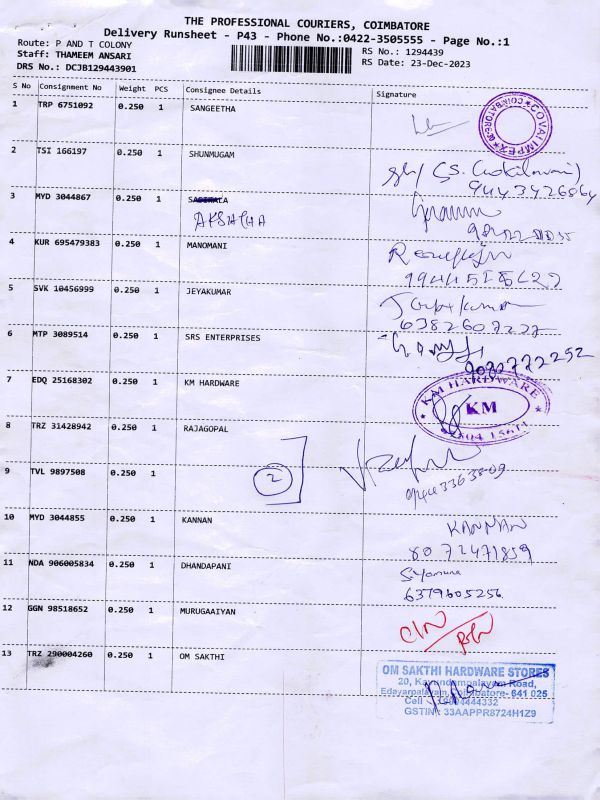 THE PROFESSIONAL COURIERS, COIMBATORE
Delivery Runsheet - P43 - Phone No.:0422-3505555 - Page No.:1
Route: P AND T COLONY
RS No.: 1294439
Staff: THAMEEM ANSARI
RS Date: 23-Dec-2023
DRS No.: DCJB129443901
S No Consignment No Weight PCS Consignee Details Signature
1 TRP 6751092 0.250 1 SANGEETHA
COVAI IMPEX COIMBATORE
2 TSI 166197 0.250 1 SHUNMUGAM
9443426864
3 MYD 3044867 0.250 1
AKSHAHA
4 KUR 695479383 0.250 1 MANOMANI
5 SVK 10456999 0.250 1 JEYAKUMAR
Jayakumar
6382607227
6 MTP 3089514 0.250 1 SRS ENTERPRISES
7 EDQ 25168302 0.250 1 KM HARDWARE
KM HARDWARE
KM
8 TRZ 31428942 0.250 1 RAJAGOPAL
9 TVL 9897508 0.250 1
2
9443363809
10 MYD 3044855 0.250 1 KANNAN
KANNAN
8072471859
11 NDA 906005834 0.250 1 DHANDAPANI
6379605256
12 GGN 98518652 0.250 1 MURUGAAIYAN
13 TRZ 290004260 0.250 1 OM SAKTHI
OM SAKTHI HARDWARE STORES
20, Road,
Coimbatore- 641 025
Cell
GSTIN: 33AAPPR8724H1Z9